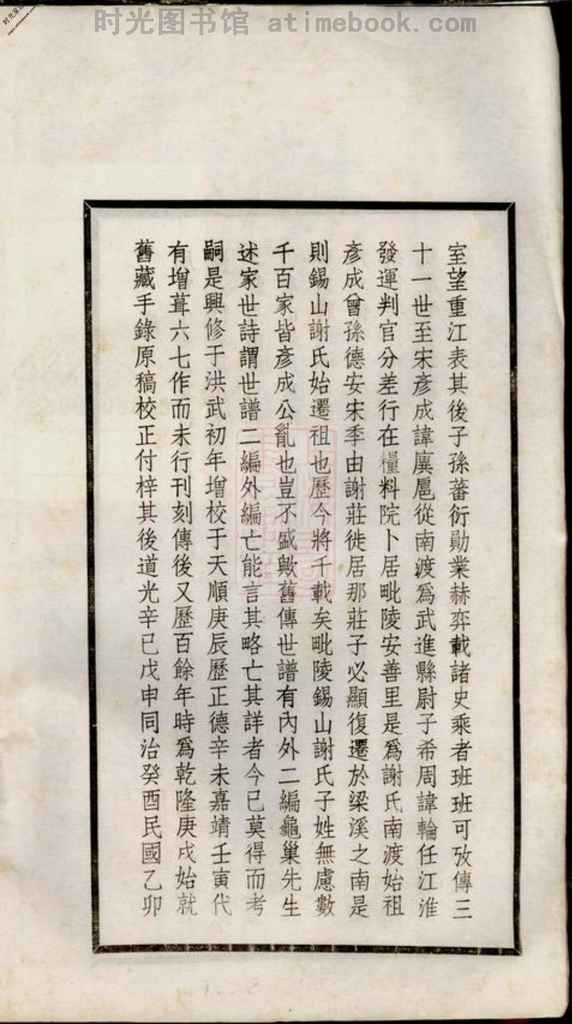 时光图书馆 atimebook.com
室望重江表其後子孫蕃衍勛業赫弈載諸史乘者班班可攷傳三
十一世至宋彥成諱廙扈從南渡爲武進縣尉子希周諱輪任江淮
發運判官分差行在糧料院卜居毗陵安善里是爲謝氏南渡始祖
彥成曾孫德安宋季由謝莊徙居那莊子必顯復遷於梁溪之南是
則錫山謝氏始遷祖也歷今將千載矣毗陵錫山謝氏子姓無慮數
千百家皆彥成公胤也豈不盛歟舊傳世譜有內外二編龜巢先生
述家世詩謂世譜二編外編亡能言其略亡其詳者今已莫得而考
嗣是興修于洪武初年增校于天順庚辰歷正德辛未嘉靖壬寅代
有增葺六七作而未行刊刻傳後又歷百餘年時爲乾隆庚戌始就
舊藏手錄原稿校正付梓其後道光辛巳戊申同治癸酉民國乙卯